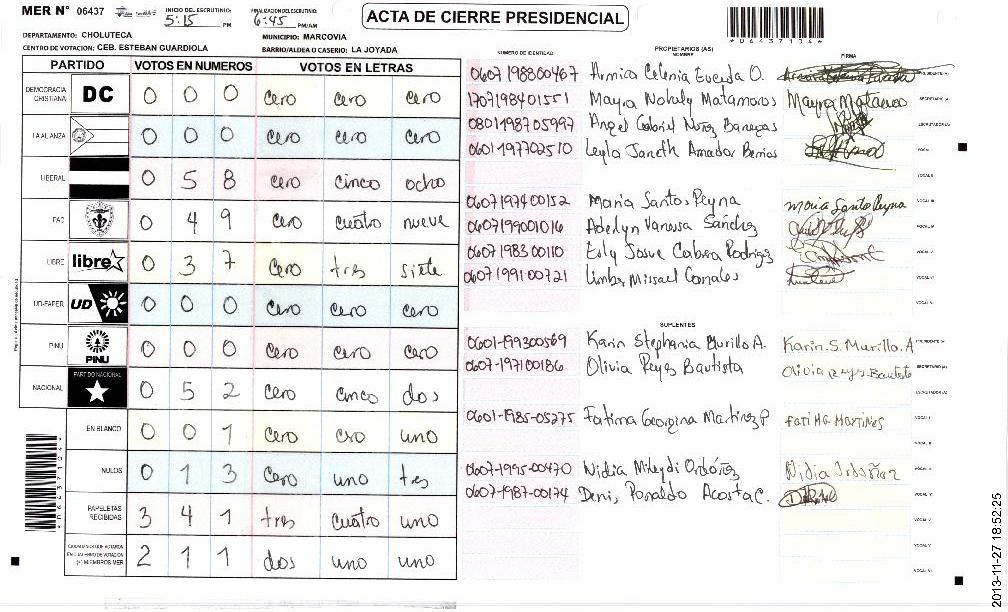 MER N° 06437
INICIO DEL ESCRUTINIO: 5:15 PM
FINALIZACION DEL ESCRUTINIO: 6:45 PM/AM
ACTA DE CIERRE PRESIDENCIAL
*06437104*
DEPARTAMENTO: CHOLUTECA
MUNICIPIO: MARCOVIA
CENTRO DE VOTACION: CEB. ESTEBAN GUARDIOLA
BARRIO/ALDEA O CASERIO: LA JOYADA
PARTIDO VOTOS EN NUMEROS VOTOS EN LETRAS
DEMOCRACIA CRISTIANA DC 0 0 0 cero cero cero
LA ALIANZA 0 0 0 cero cero cero
LIBERAL 0 5 8 cero cinco ocho
PAC 0 4 9 cero cuatro nueve
LIBRE libre 0 3 7 cero tres siete
UD-FAPER UD 0 0 0 cero cero cero
PINU PINU 0 0 0 cero cero cero
NACIONAL PARTIDO NACIONAL 0 5 2 cero cinco dos
EN BLANCO 0 0 1 cero cro uno
NULOS 0 1 3 cero uno tres
PAPELETAS RECIBIDAS 3 4 1 tres cuatro uno
CIUDADANOS QUE VOTARON EN CUADERNO DE VOTACION (+) MIEMBROS MER 2 1 1 dos uno uno
*06437104*
NUMERO DE IDENTIDAD PROPIETARIOS (AS) NOMBRE FIRMA
0607198800467 PRESIDENTE (A)
1707198401551 Mayra Nohely Matamoros Mayra Matamoros SECRETARIO (A)
0801198705997 Angel Gabriel Nuñez Banegas ESCRUTADOR (A)
0601197702510 Leyla Janeth Amador Berrios VOCAL I
VOCAL II
0607197400152 Maria Santos Reyna Maria Santo Reyna VOCAL III
0607199001016 Adelyn Vanessa Sánchez VOCAL IV
0607198300110 Josue Cabrera Rodrigez VOCAL V
0607199100721 Misael VOCAL VI
SUPLENTES
0601-199300569 Karin Stephania Murillo A. Karin.S.Murillo.A PRESIDENTE (A)
0607-197100186 Olivia Reyes Bautista Olivia Reyes Bautista SECRETARIO (A)
ESCRUTADOR (A)
0601-1985-05275 Fatima Georgina Martinez P Fatima Martines VOCAL I
VOCAL II
0607-1995-00470 Nidia Mileydi Ordóñez Nidia Ordoñez VOCAL III
0607-1987-00174 Denis Ronaldo Acosta C. VOCAL IV
VOCAL V
2013-11-27 18:52:25